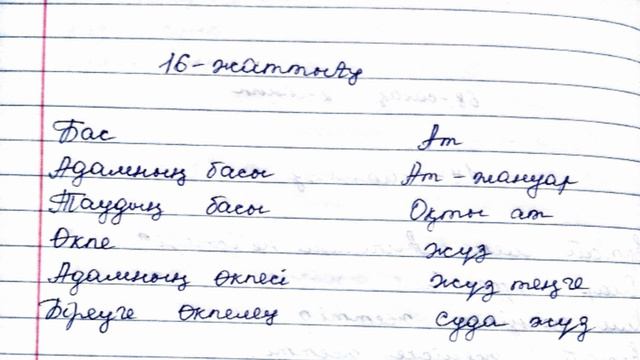 16-жаттыАу
Бас Ат
Адамның басы Ат - жануар
Таудың басы Оқты ат
Өкпе жүз
Адамның өкпесі жүз теңге
Біреуге өкпелеу суда жүз